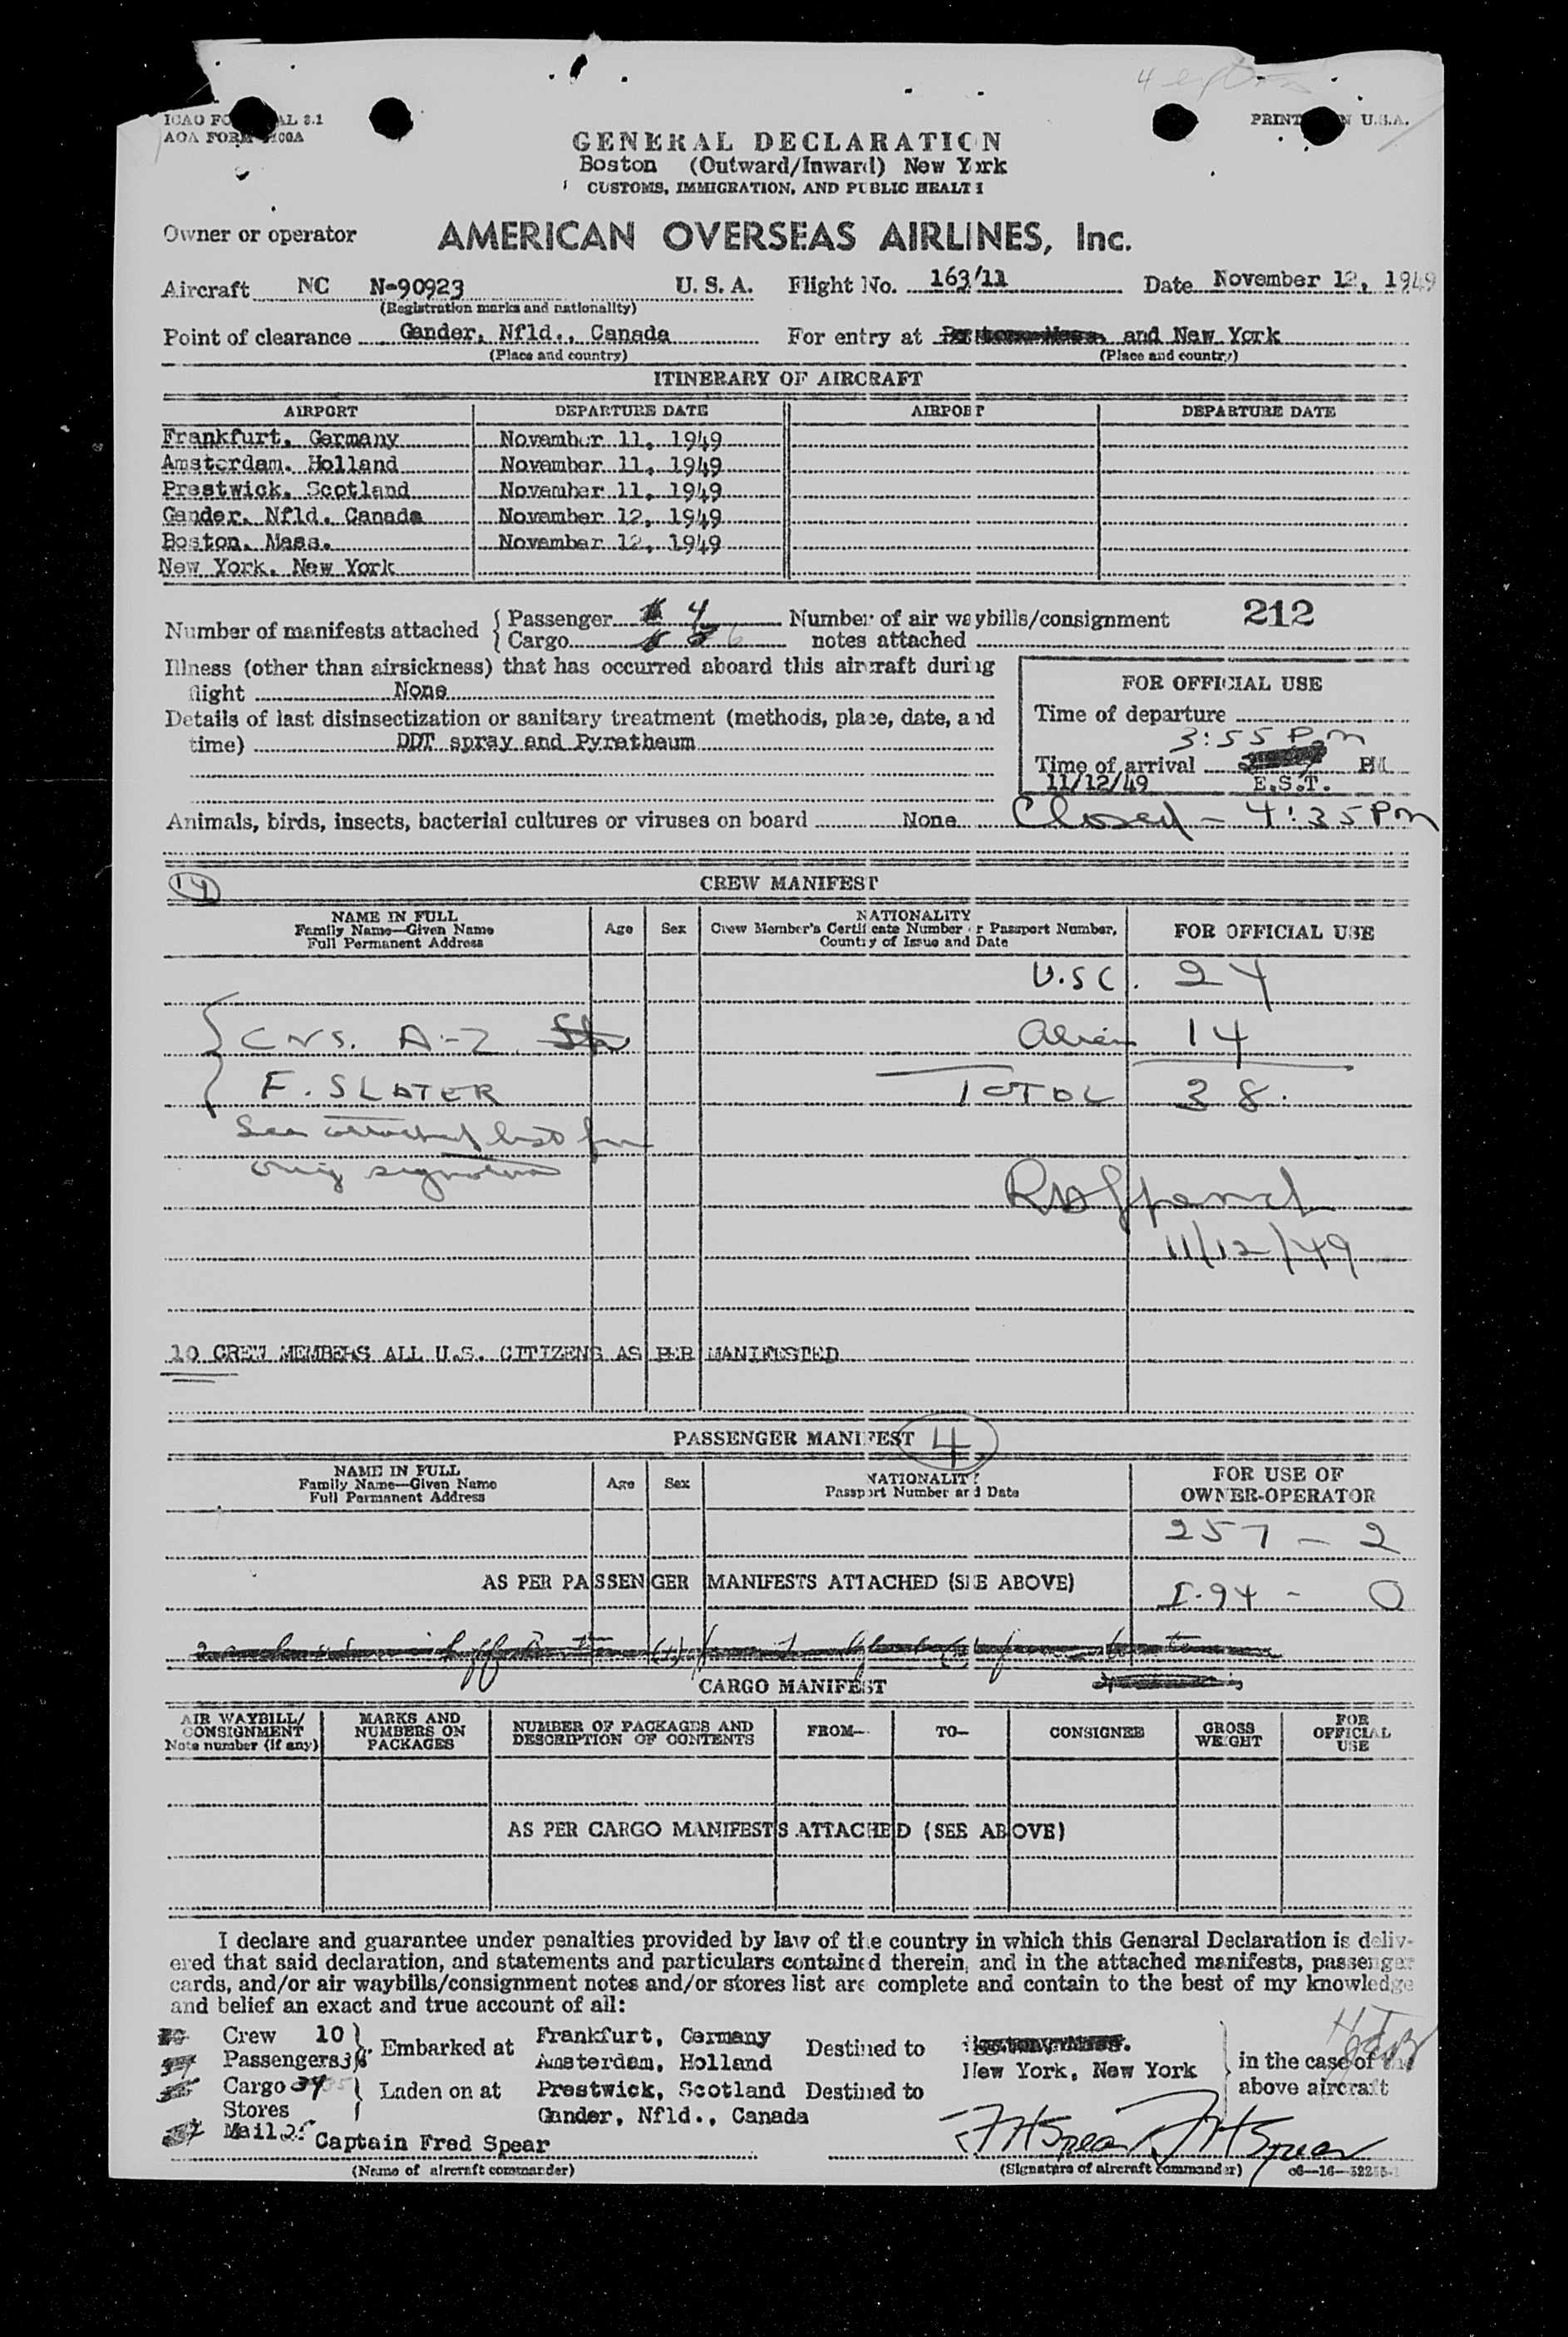 PRINT N U.S.A.
GENERAL DECLARATION
Boston (Outward/Inward) New York
CUSTOMS, IMMIGRATION, AND PUBLIC HEALTH
Owner or operator AMERICAN OVERSEAS AIRLINES, Inc.
Aircraft NC N-90923 U. S. A. Flight No. 163/11 Date November 12, 1949
(Registration marks and nationality)
Point of clearance Gander, Nfld., Canada For entry at and New York
(Place and country) (Place and country)
ITINERARY OF AIRCRAFT
AIRPORT DEPARTURE DATE AIRPORT DEPARTURE DATE
Frankfurt, Germany November 11, 1949
Amsterdam, Holland November 11, 1949
Prestwick, Scotland November 11, 1949
Gander, Nfld. Canada November 12, 1949
Boston, Mass. November 12, 1949
New York, New York
Number of manifests attached { Passenger 4 Number of air waybills/consignment 212
{ Cargo 6 notes attached
Illness (other than airsickness) that has occurred aboard this aircraft during
flight None
Details of last disinsectization or sanitary treatment (methods, place, date, and
time) DDT spray and Pyretheum
FOR OFFICIAL USE
Time of departure
3:55 Pm
Time of arrival PM
11/12/49 E.S.T.
Animals, birds, insects, bacterial cultures or viruses on board None Closed - 4:35 Pm
14 CREW MANIFEST
NAME IN FULL Age Sex NATIONALITY FOR OFFICIAL USE
Family Name—Given Name Crew Member's Certificate Number or Passport Number,
Full Permanent Address Country of Issue and Date
U.S.C. 24
CNS. A-2 Alien 14
F. SLATER TOTAL 38.
See attached list for
orig signatures
11/12/49
10 CREW MEMBERS ALL U.S. CITIZENS AS PER MANIFESTED
PASSENGER MANIFEST 4
NAME IN FULL Age Sex NATIONALITY FOR USE OF
Family Name—Given Name Passport Number and Date OWNER-OPERATOR
Full Permanent Address
257 - 2
AS PER PASSENGER MANIFESTS ATTACHED (SEE ABOVE)
I-94 - 0
CARGO MANIFEST
AIR WAYBILL/ MARKS AND NUMBER OF PACKAGES AND FROM— TO— CONSIGNEE GROSS FOR
CONSIGNMENT NUMBERS ON DESCRIPTION OF CONTENTS WEIGHT OFFICIAL
Note number (if any) PACKAGES USE
AS PER CARGO MANIFESTS ATTACHED (SEE ABOVE)
I declare and guarantee under penalties provided by law of the country in which this General Declaration is deliv-
ered that said declaration, and statements and particulars contained therein, and in the attached manifests, passenger
cards, and/or air waybills/consignment notes and/or stores list are complete and contain to the best of my knowledge
and belief an exact and true account of all:
Crew 10 } Embarked at Frankfurt, Germany Destined to
Passengers Amsterdam, Holland New York, New York in the case of the
Cargo 34 } Laden on at Prestwick, Scotland Destined to above aircraft
Stores Gander, Nfld., Canada
Mail
Captain Fred Spear FH Spear FH Spear
(Name of aircraft commander) (Signature of aircraft commander)